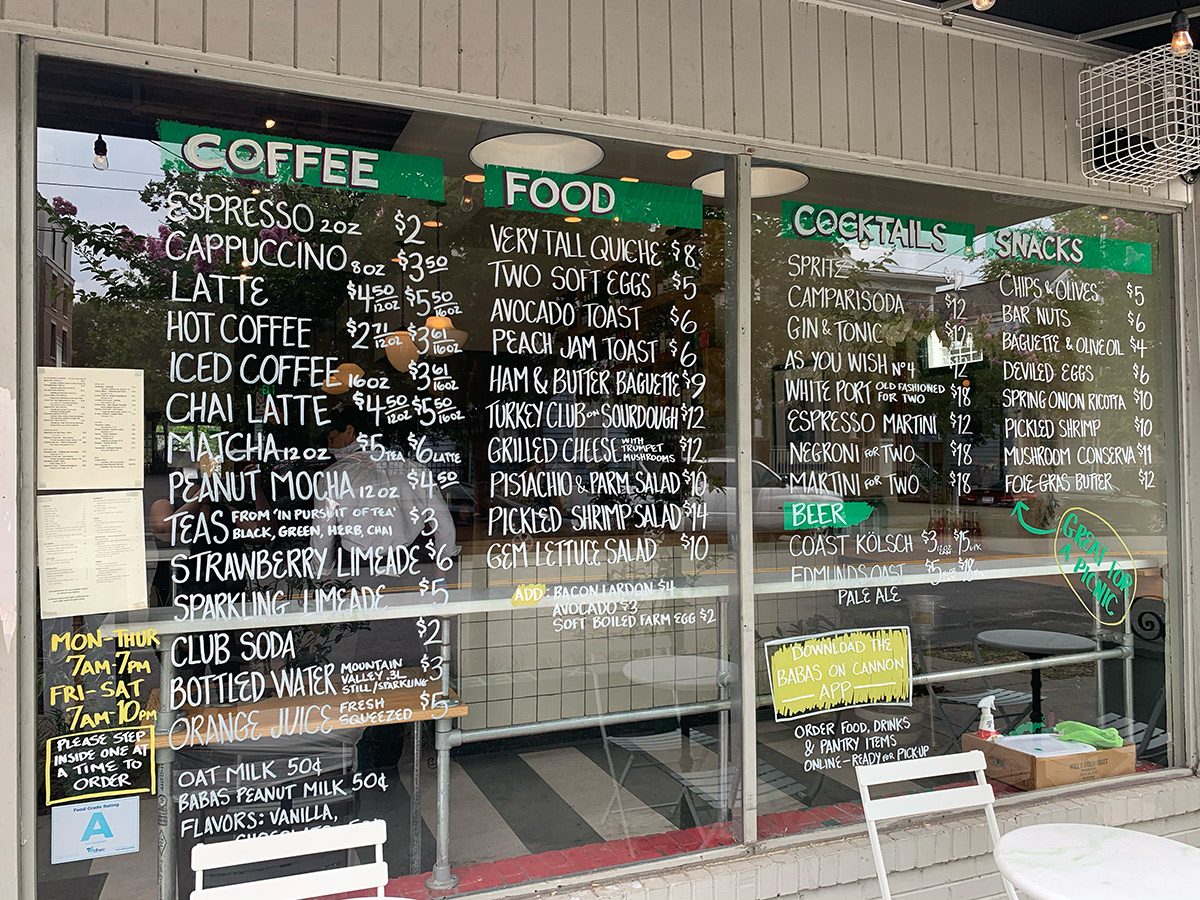 COFFEE
ESPRESSO 2OZ $2
CAPPUCCINO 8OZ $3 50
LATTE $4 50 12OZ $5 50 16OZ
HOT COFFEE $2 71 12OZ $3 61 16OZ
ICED COFFEE 16OZ $3 61 16OZ
CHAI LATTE $4 50 12OZ $5 50 16OZ
MATCHA 12OZ $5 TEA $6 LATTE
PEANUT MOCHA 12OZ $4 50
TEAS FROM 'IN PURSUIT OF TEA' BLACK, GREEN, HERB, CHAI $3
STRAWBERRY LIMEADE $6
SPARKLING LIMEADE $5
CLUB SODA $2
BOTTLED WATER MOUNTAIN VALLEY .3L STILL/SPARKLING $3
ORANGE JUICE FRESH SQUEEZED $5
OAT MILK 50¢
BABAS PEANUT MILK 50¢
FLAVORS: VANILLA,
FOOD
VERY TALL QUICHE $8
TWO SOFT EGGS $5
AVOCADO TOAST $6
PEACH JAM TOAST $6
HAM & BUTTER BAGUETTE $9
TURKEY CLUB ON SOURDOUGH $12
GRILLED CHEESE WITH TRUMPET MUSHROOMS $12
PISTACHIO & PARM SALAD $10
PICKLED SHRIMP SALAD $14
GEM LETTUCE SALAD $10
ADD: BACON LARDON $4
AVOCADO $3
SOFT BOILED FARM EGG $2
COCKTAILS
SPRITZ
CAMPARI SODA $12
GIN & TONIC $12
AS YOU WISH Nº4 12
WHITE PORT OLD FASHIONED FOR TWO $18
ESPRESSO MARTINI $12
NEGRONI FOR TWO $18
MARTINI FOR TWO $18
BEER
COAST KÖLSCH $3 $15
EDMUNDS OAST $5 $18
PALE ALE
SNACKS
CHIPS & OLIVES $5
BAR NUTS $6
BAGUETTE & OLIVE OIL $4
DEVILED EGGS $6
SPRING ONION RICOTTA $10
PICKLED SHRIMP $10
MUSHROOM CONSERVA $11
FOIE GRAS BUTTER $12
GREAT FOR
A PICNIC
DOWNLOAD THE
BABAS ON CANNON
APP
ORDER FOOD, DRINKS
& PANTRY ITEMS
ONLINE-READY FOR PICK-UP
MON-THUR
7AM-7PM
FRI-SAT
7AM 10PM
PLEASE STEP
INSIDE ONE AT
A TIME TO
ORDER
Food Grade Rating
A